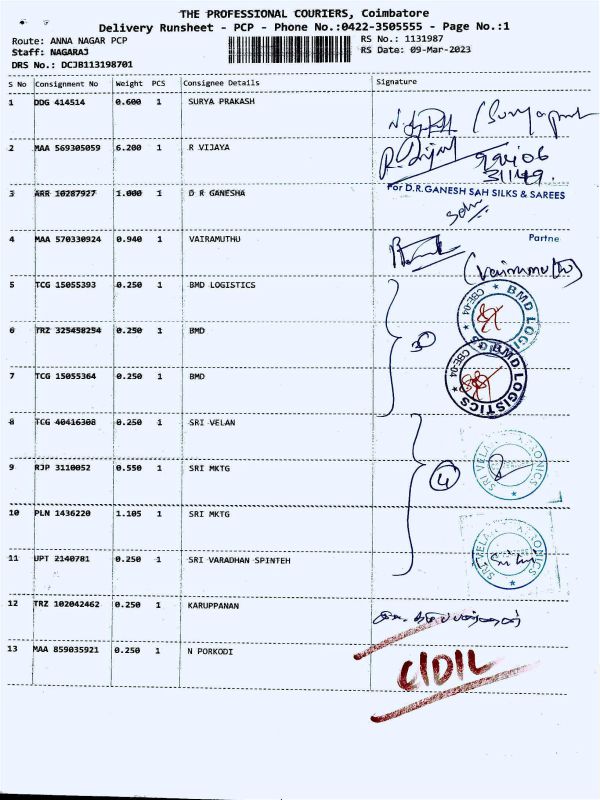 THE PROFESSIONAL COURIERS, Coimbatore
Delivery Runsheet - PCP - Phone No.:0422-3505555 - Page No.:1
Route: ANNA NAGAR PCP RS No.: 1131987
Staff: NAGARAJ RS Date: 09-Mar-2023
DRS No.: DCJB113198701
S No Consignment No Weight PCS Consignee Details Signature
1 DDG 414514 0.600 1 SURYA PRAKASH
2 MAA 569305059 6.200 1 R VIJAYA
R. Vijay
3 ARR 10287927 1.000 1 D R GANESHA
For D.R.GANESH SAH SILKS & SAREES
Partne
4 MAA 570330924 0.940 1 VAIRAMUTHU
(Vairamuthu)
5 TCG 15055393 0.250 1 BMD LOGISTICS
BMD LOGIS CBE-04
6 TRZ 325458254 0.250 1 BMD
3
7 TCG 15055364 0.250 1 BMD
BMD LOGISTICS CBE-04
8 TCG 40416308 0.250 1 SRI VELAN
9 RJP 3110052 0.550 1 SRI MKTG
4
10 PLN 1436220 1.105 1 SRI MKTG
11 UPT 2140781 0.250 1 SRI VARADHAN SPINTEH
12 TRZ 102042462 0.250 1 KARUPPANAN
13 MAA 859035921 0.250 1 N PORKODI
C/D/L